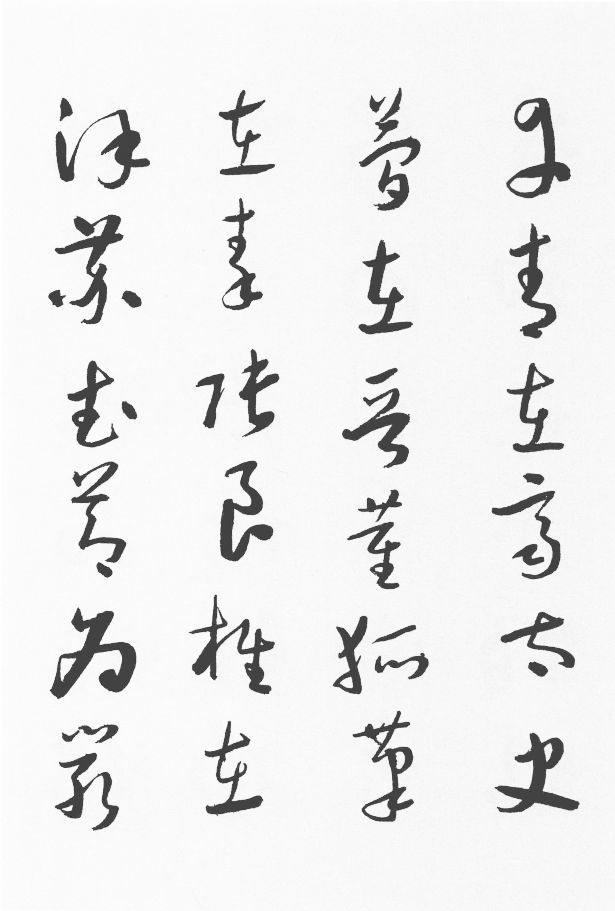 丹青在齊太史
簡在晉董狐筆
在秦張良椎在
漢蘇武節為嚴